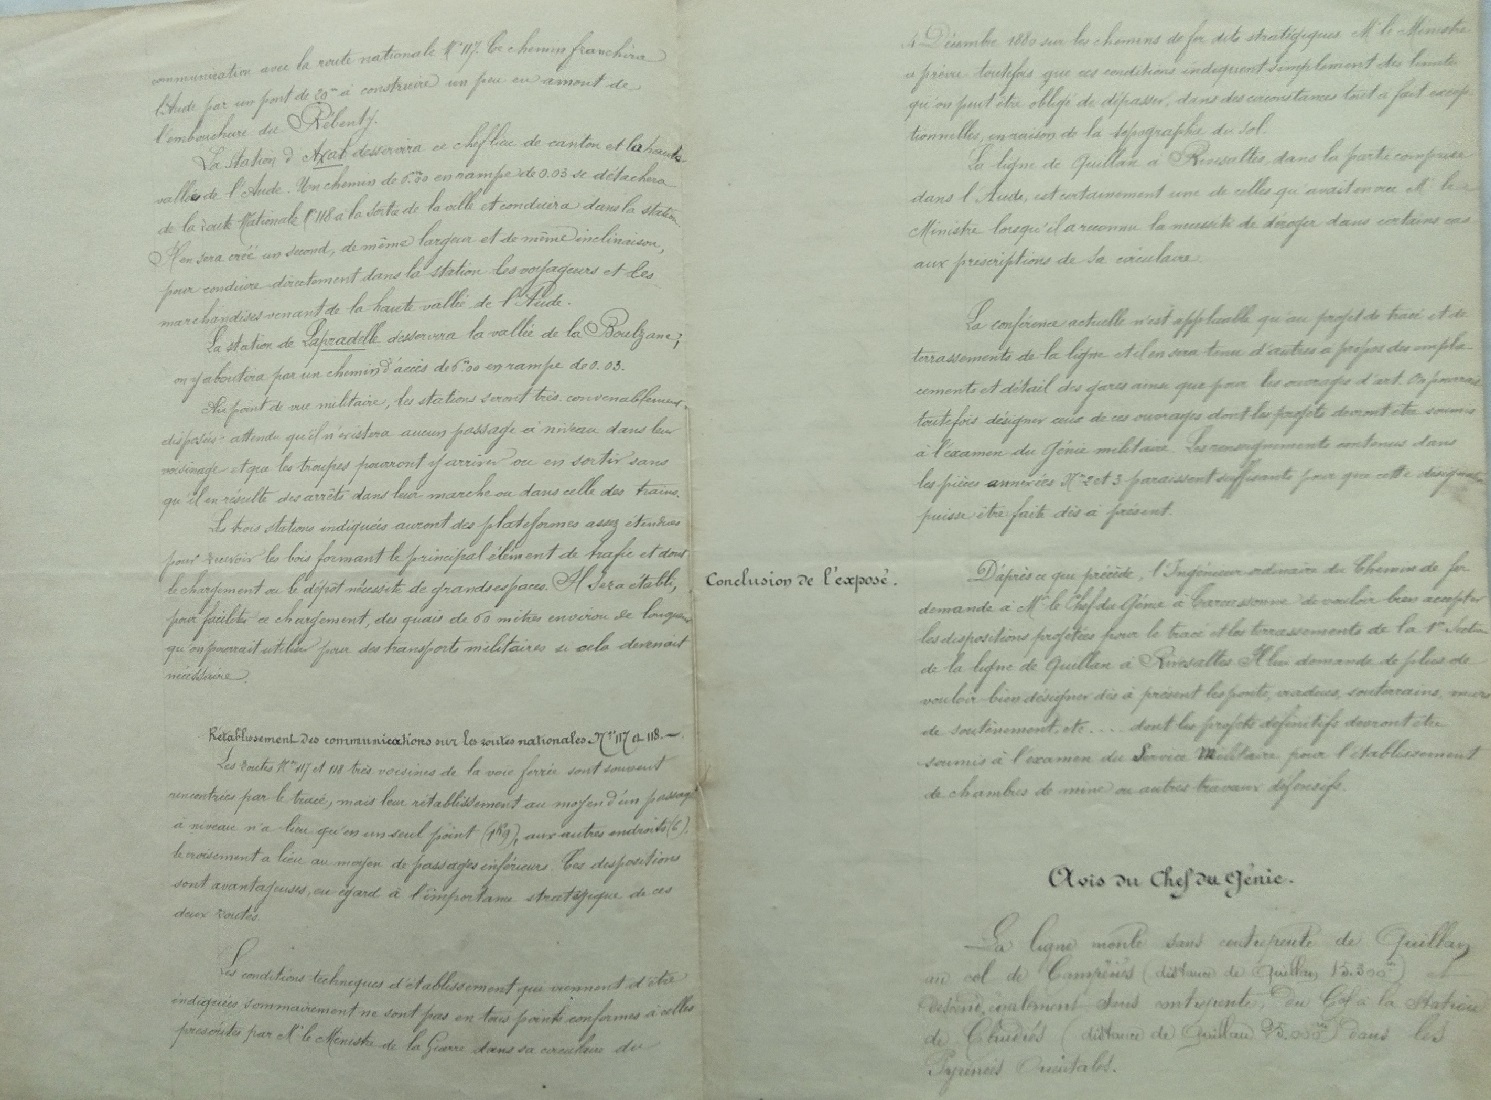 communication avec la route nationale N° 117. Ce chemin franchira
l'Aude par un pont de 20m à construire un peu en amont de
l'embouchure du Rébenty.
La station d'Axat desservira ce chef lieu de canton et la haute
vallée de l'Aude. Un chemin de 6m00 en rampe de 0.03 se détachera
de la route Nationale N° 118 à la sortie de la ville et conduira dans la station
Il en sera créé un second, de même largeur et de même inclinaison,
pour conduire directement dans la station les voyageurs et les
marchandises venant de la haute vallée de l'Aude.
La station de Lapradelle desservira la vallée de la Boulzane;
on y aboutira par un chemin d'accès de 6m00 en rampe de 0.03.
Au point de vue militaire, les stations seront très convenablement
disposées attendu qu'il n'existera aucun passage à niveau dans leur
voisinage et que les troupes pourront y arriver ou en sortir sans
qu'il en résulte des arrêts dans leur marche ou dans celle des trains.
Les trois stations indiquées auront des plateformes assez étendues
pour recevoir les bois formant le principal élément de trafic et dont
le chargement ou le dépôt nécessite de grands espaces. Il sera établi,
pour faciliter ce chargement, des quais de 60 mètres environ de longueur
qu'on pourrait utiliser pour des transports militaires si cela devenait
nécessaire.
Rétablissement des communications sur les routes nationales Nos 117 et 118.
Les routes Nos 117 et 118 très voisines de la voie ferrée sont souvent
rencontrées par le tracé, mais leur rétablissement au moyen d'un passage
à niveau n'a lieu qu'en un seul point, aux autres endroits (6),
le croisement a lieu au moyen de passages inférieurs. Ces dispositions
sont avantageuses, eu égard à l'importance stratégique de ces
deux routes.
Les conditions techniques d'établissement qui viennent d'être
indiquées sommairement ne sont pas en tous points conformes à celles
prescrites par Mr le Ministre de la Guerre dans sa circulaire du
Décembre 1880 sur les chemins de fer dits stratégiques Mr le Ministre
a prévu toutefois que ces conditions indiquent simplement des limites
qu'on peut être obligé de dépasser, dans des circonstances tout à fait excep-
tionnelles, en raison de la topographie du sol.
La ligne de Quillan à Rivesaltes, dans la partie comprise
dans l'Aude, est certainement une de celles qu'avait en vue Mr le
Ministre lorsqu'il a reconnu la nécessité de déroger dans certains cas
aux prescriptions de sa circulaire
La conférence actuelle n'est applicable qu'au projet de tracé et de
terrassements de la ligne et il en sera tenu d'autres à propos des empla-
cements et détail des gares ainsi que pour les ouvrages d'art. On pourrait
toutefois désigner ceux de ces ouvrages dont les projets devront être soumis
à l'examen du Génie militaire. Les renseignements contenus dans
les pièces annexées Nos 2 et 3 paraissent suffisants pour que cette désignation
puisse être faite dès à présent.
Conclusion de l'exposé.
D'après ce qui précède, l'Ingénieur ordinaire du Chemin de fer
demande à Mr le Chef du Génie à Carcassonne de vouloir bien accepter
les dispositions projetées pour le tracé et les terrassements de la 1re Section
de la ligne de Quillan à Rivesaltes. Il lui demande de plus de
vouloir bien désigner dès à présent les ponts, viaducs, souterrains, murs
de soutènement, etc .... dont les projets définitifs devront être
soumis à l'examen du Service Militaire pour l'établissement
de chambres de mine ou autres travaux défensifs.
Avis du Chef du Génie.
La ligne monte sans contrepente de Quillan
au col de Campérié (distance de Quillan 15.300m) et
descend également sans contrepente, du Col à la Station
de Caudiès (distance de Quillan) dans les
Pyrénées Orientales.